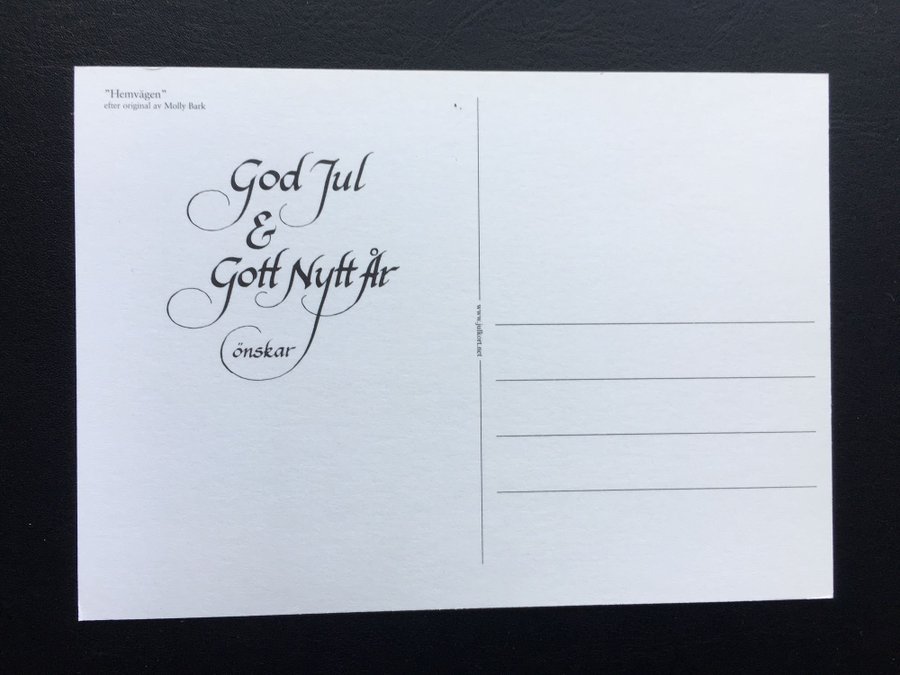 "Hemvägen"
efter original av Molly Bark
God Jul
&
Gott Nytt År
önskar
www.julkort.net